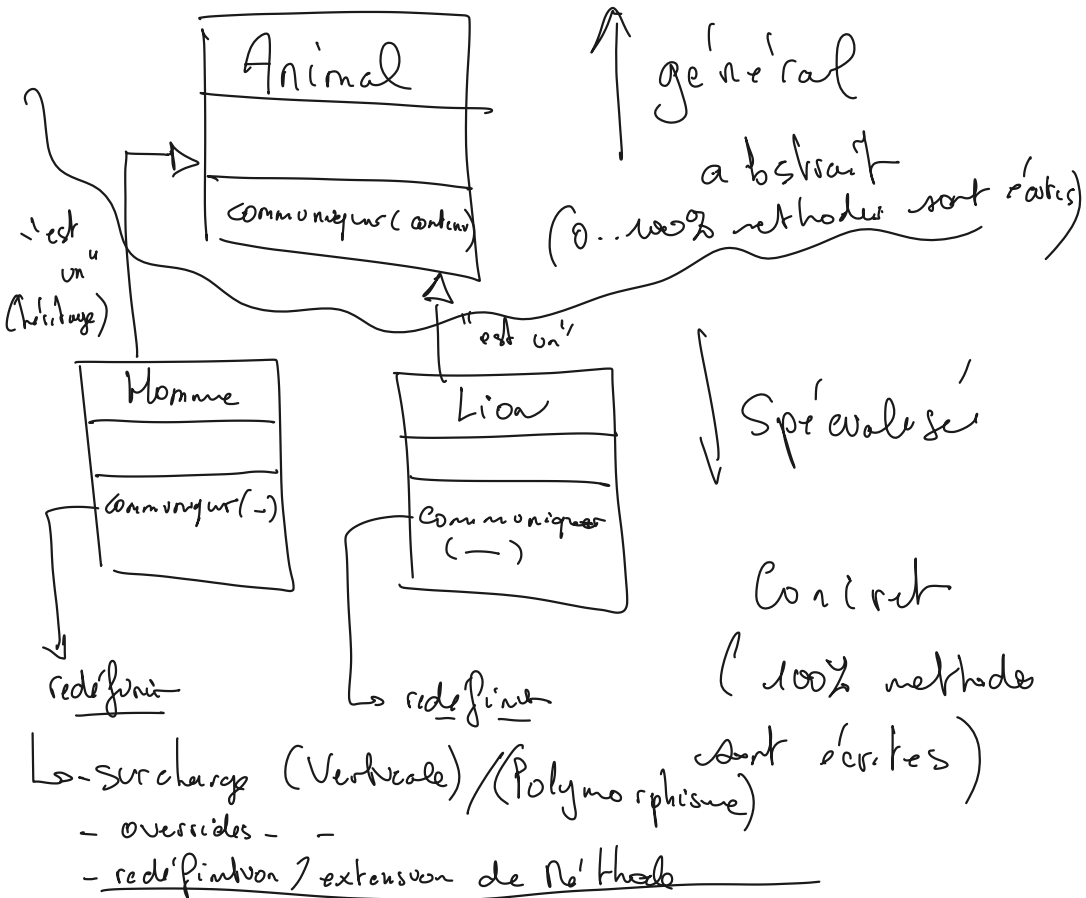 Animal
communiquer (contenu)
général
abstrait
(0..100% methodes sont écrites)
"est
un"
(héritage)
"est un"
Homme
communiquer(-)
Lion
communiquer
(—)
Spécialisé
Concret
(100% methodes
sont écrites)
redéfinir
redéfinir
- surcharge (Verticale) / (Polymorphisme)
- overrides - -
- redéfinition / extension de Méthode